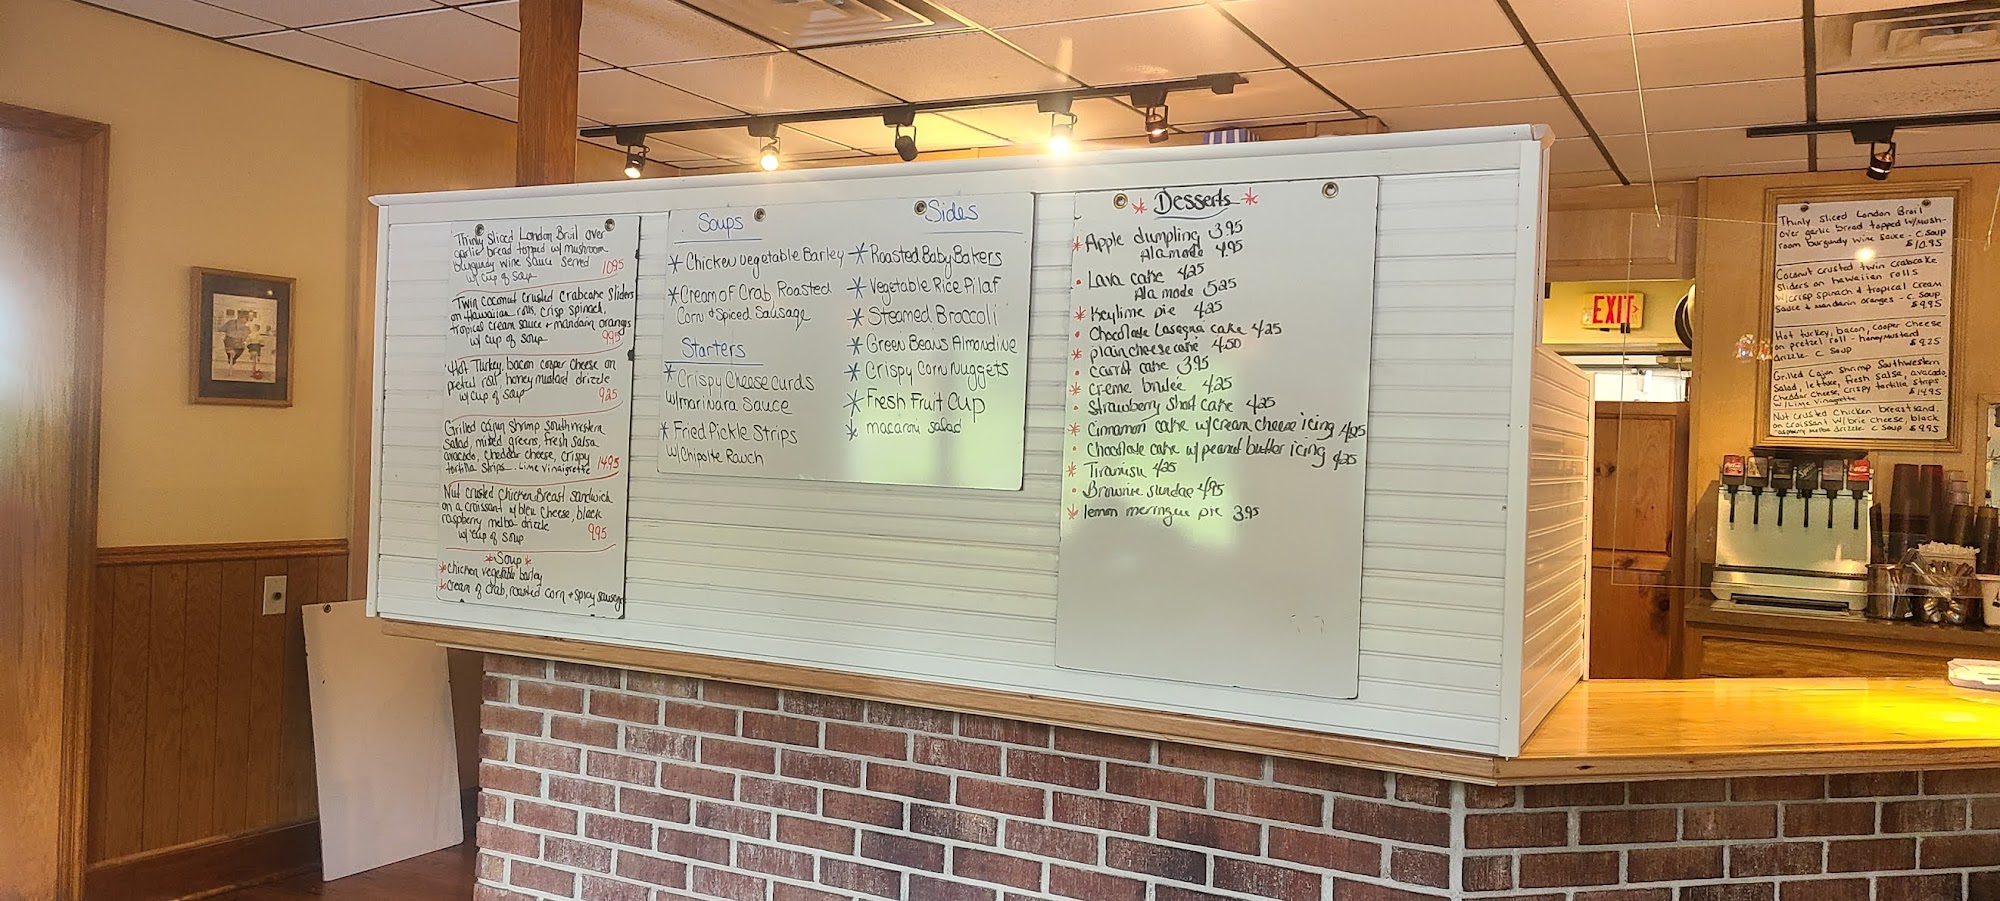 Thinly Sliced London Broil over
garlic bread topped w/ mushroom
burgundy wine sauce served
w/ cup of soup 1095
Twin coconut crusted crabcake sliders
on Hawaiian rolls, crisp spinach,
tropical cream sauce + mandarin oranges
w/ cup of soup 995
Hot Turkey, bacon cooper cheese on
pretzel roll, honey mustard drizzle
w/ cup of soup 925
Grilled cajun shrimp southwestern
salad, mixed greens, fresh salsa
avacado, cheddar cheese, crispy
tortilla strips - lime vinaigrette 1495
Nut crusted chicken Breast sandwich
on a croissant w/ bleu cheese, black
raspberry melba drizzle
w/ cup of soup 995
*Soup*
*chicken vegetable barley
*cream of crab, roasted corn + spicy sausage
Soups
*Chicken Vegetable Barley
*Cream of Crab, Roasted
Corn & Spiced Sausage
Starters
*Crispy Cheese curds
w/ marinara sauce
*Fried Pickle Strips
w/ Chipolte Ranch
Sides
*Roasted Baby Bakers
*Vegetable Rice Pilaf
*Steamed Broccoli
*Green Beans Almondine
*Crispy Corn Nuggets
*Fresh Fruit Cup
*macaroni salad
*Desserts*
*Apple dumpling 3.95
Alamode 4.95
• Lava cake 4.25
Ala mode 5.25
*Keylime pie 4.25
• Chocolate Lasagna cake 4.25
*plain cheesecake 4.50
• Carrot cake 3.95
*Creme brulee 4.25
• Strawberry short cake 4.25
*Cinnamon cake w/ cream cheese icing 4.25
• Chocolate cake w/ peanut butter icing 4.25
*Tiramisu 4.25
• Brownie sundae 4.95
*lemon meringue pie 3.95
EXIT
Thinly sliced London Broil
over garlic bread topped w/ mush-
room burgundy wine sauce - C. Soup
$10.95
Coconut crusted twin crabcake
sliders on hawaiian rolls
w/ crisp spinach & tropical cream
sauce & mandarin oranges - C. Soup
$9.95
Hot turkey, bacon, cooper cheese
on pretzel roll - honey mustard
drizzle C. Soup $9.25
Grilled Cajun shrimp Southwestern
Salad, lettuce, fresh salsa, avacado,
Cheddar cheese, crispy tortilla strips
w/ Lime Vinaigrette $14.95
Nut crusted Chicken breast sand.
on croissant w/ brie cheese, black
raspberry melba drizzle C. Soup $9.95